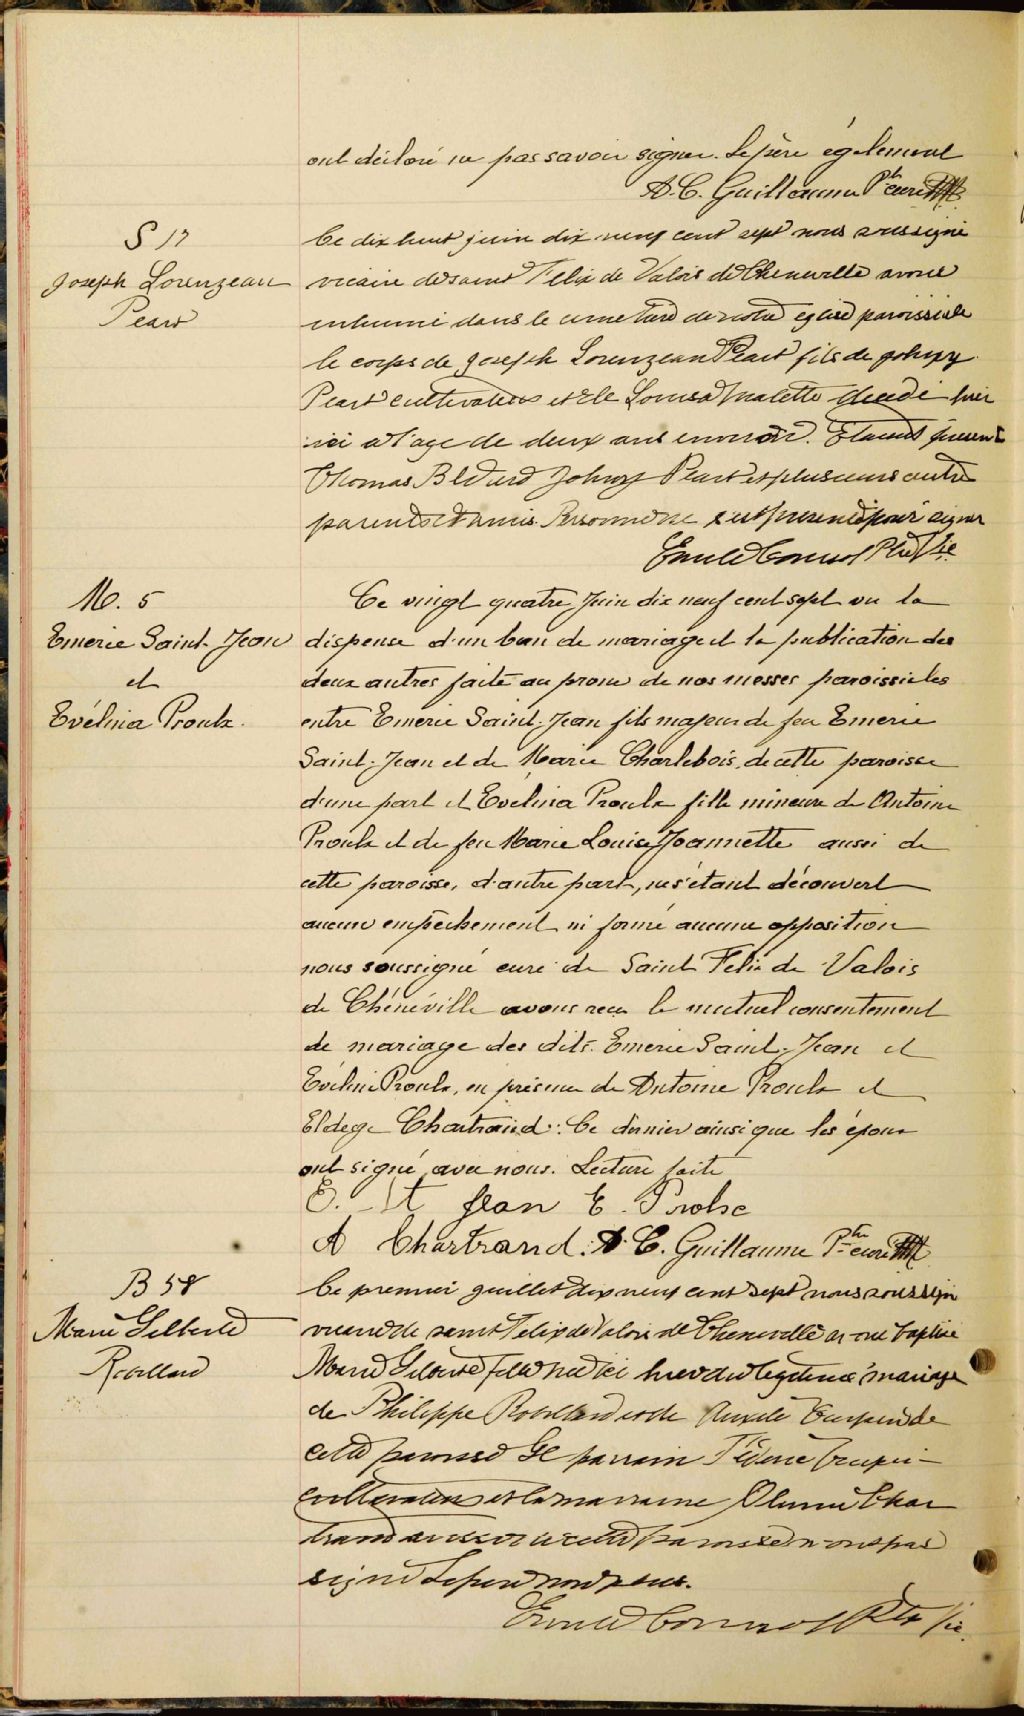 ont déclaré ne pas savoir signer. Le père également
A. C. Guillaume Ptre curé
S 17
Joseph Lorenzeau
Peart
Ce dix huit juin dix neuf cent sept nous soussigné
vicaire de saint Felix de Valois de Cheneville avons
inhumé dans le cimetiere de notre eglise paroissiale
le corps de Joseph Lorenzeau Peart fils de Johnny
Peart cultivateur et de Louisa Malette decedé hier
ici a l'age de deux ans environ. Etaient present
Thomas Bedard Johnny Peart et plusieurs autre
parents et amis. Personne ne s'est presenté pour signer
Ptre Vic
M. 5
Emerie Saint-Jean
et
Evélina Proulx.
Ce vingt quatre Juin dix neuf cent sept vu la
dispense d'un ban de mariage et la publication des
deux autres faite au prone de nos messes paroissiales
entre Emerie Saint-Jean fils majeur de feu Emerie
Saint-Jean et de Marie Charlebois, de cette paroisse
d'une part et Evelina Proulx fille mineure de Antoine
Proulx et de feu Marie Louise Joannette aussi de
cette paroisse, d'autre part, ne s'étant découvert
aucun empêchement ni formé aucune opposition
nous soussigné curé de Saint Felix de Valois
de Chénéville avons recu le mutuel consentement
de mariage des dits Emerie Saint-Jean et
Evelina Proulx, en présence de Antoine Proulx et
Eldege Chartrand. Ce dernier ainsi que les époux
ont signé avec nous. Lecture faite
E. St Jean E. Prolx
A Chartrand. A. C. Guillaume Ptre curé
B 58
Marie Gilberte
Robillard
Ce premier juillet dix neuf cent sept nous soussigne
vicaire de saint Felix de Valois de Cheneville avons baptisé
Marie Gilberte fille née ici hier du legitime mariage
de Philippe Robillard et de Turpin de
cette paroisse Le parrain Turpin
cultivateur et la marraine Char
trand aussi de cette paroisse n'ont pas
signé Le pere non plus.
Ptre Vic.